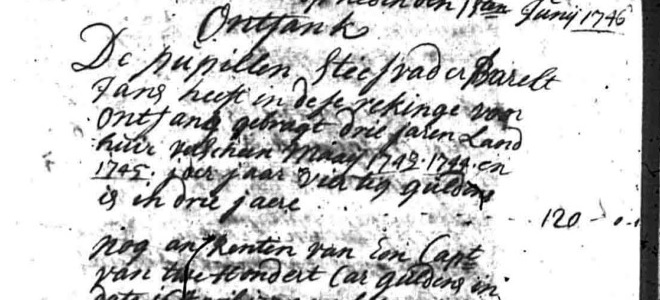 Junij 1746
Ontfank
De pupillen Stiefvader Barelt
Jans heeft in dese rekinge voor
Ontfang gebragt drie jaren Land
huir verschein Maaij 1743. 1744. en
1745. jder jaar viertig guldens
is in drie jaere
120 - 0..
nog an Renten van Een Capt
van twe Hondert Car guldens in